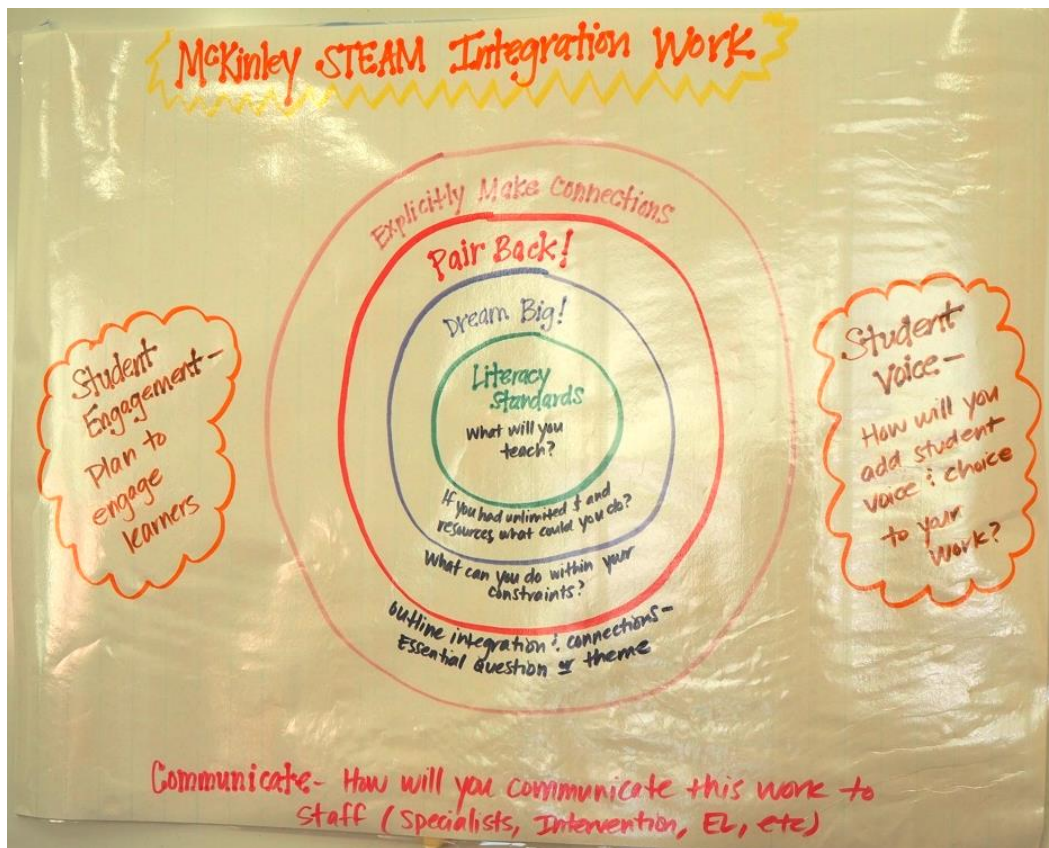 McKinley STEAM Integration Work
Explicitly Make Connections
Pair Back!
Dream Big!
Literacy
Standards
What will you
teach?
If you had unlimited $ and
resources what could you do?
What can you do within your
constraints?
outline integration & connections-
Essential Question or theme
Student
Engagement-
Plan to
engage
learners
Student
Voice-
How will you
add student
voice & choice
to your
work?
Communicate- How will you communicate this work to
Staff (Specialists, Intervention, EL, etc)